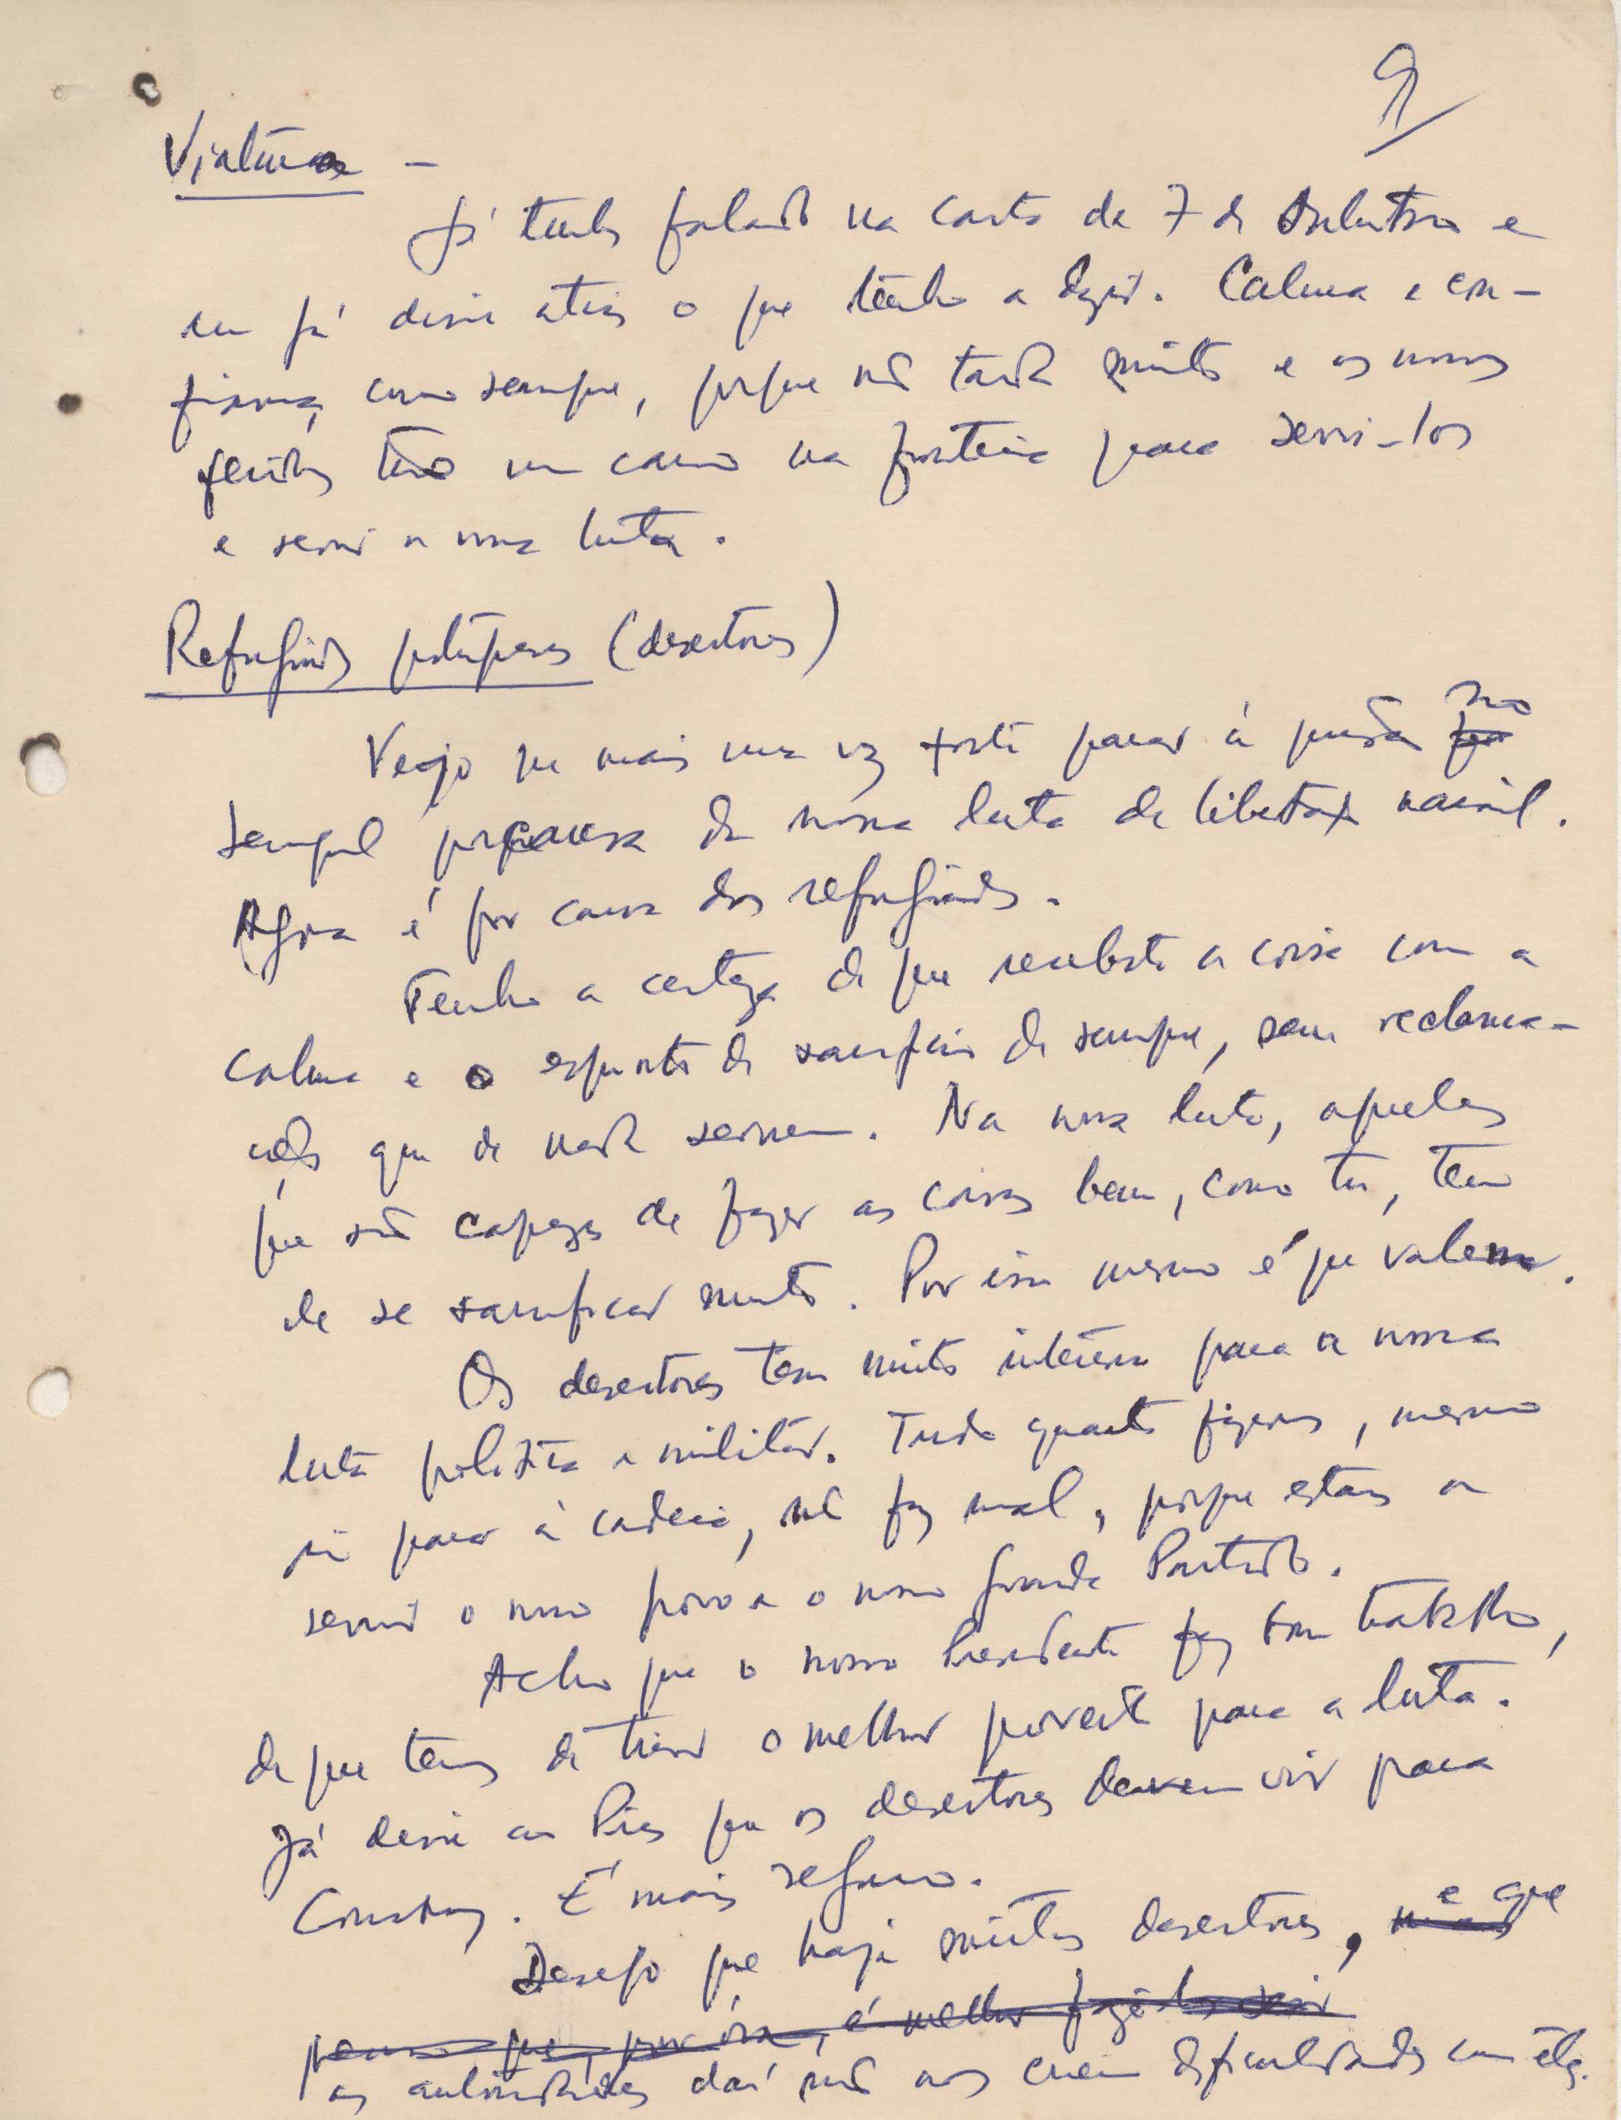 9
Viaturas -
Já tinhas falado na carta de 7 de Setembro e
eu já disse atrás o que tenho a dizer. Calma e con-
fiança, como sempre, porque não tarda muito e os nossos
feridos terão um carro na fronteira para servi-los
e servir a nossa luta.
Refugiados portugueses (desertores)
Vejo que mais uma vez foste parar à prisão no
Senegal por causa da nossa luta de libertação nacional.
Agora é por causa dos refugiados.
Tenho a certeza de que recebeste a coisa com a
calma e o espírito de sacrifício de sempre, sem reclama-
ções que de nada servem. Na nossa luta, aqueles
que são capazes de fazer as coisas bem, como tu, tem
de se sacrificar muito. Por isso mesmo é que valem.
Os desertores tem muito interesse para a nossa
luta política e militar. Tudo quanto fizeres, mesmo
ir parar à cadeia, não faz mal, porque estás a
servir o nosso povo e o nosso grande Partido.
Acho que o nosso Presidente fez bom trabalho,
de que temos de tirar o melhor proveito para a luta.
Já disse ao Pires que os desertores devem vir para
Conakry. É mais seguro.
Desejo que haja muitos desertores, e que
penso que, por ora, é melhor fazê-los sair
as autoridades daí não nos criem dificuldades com êles.